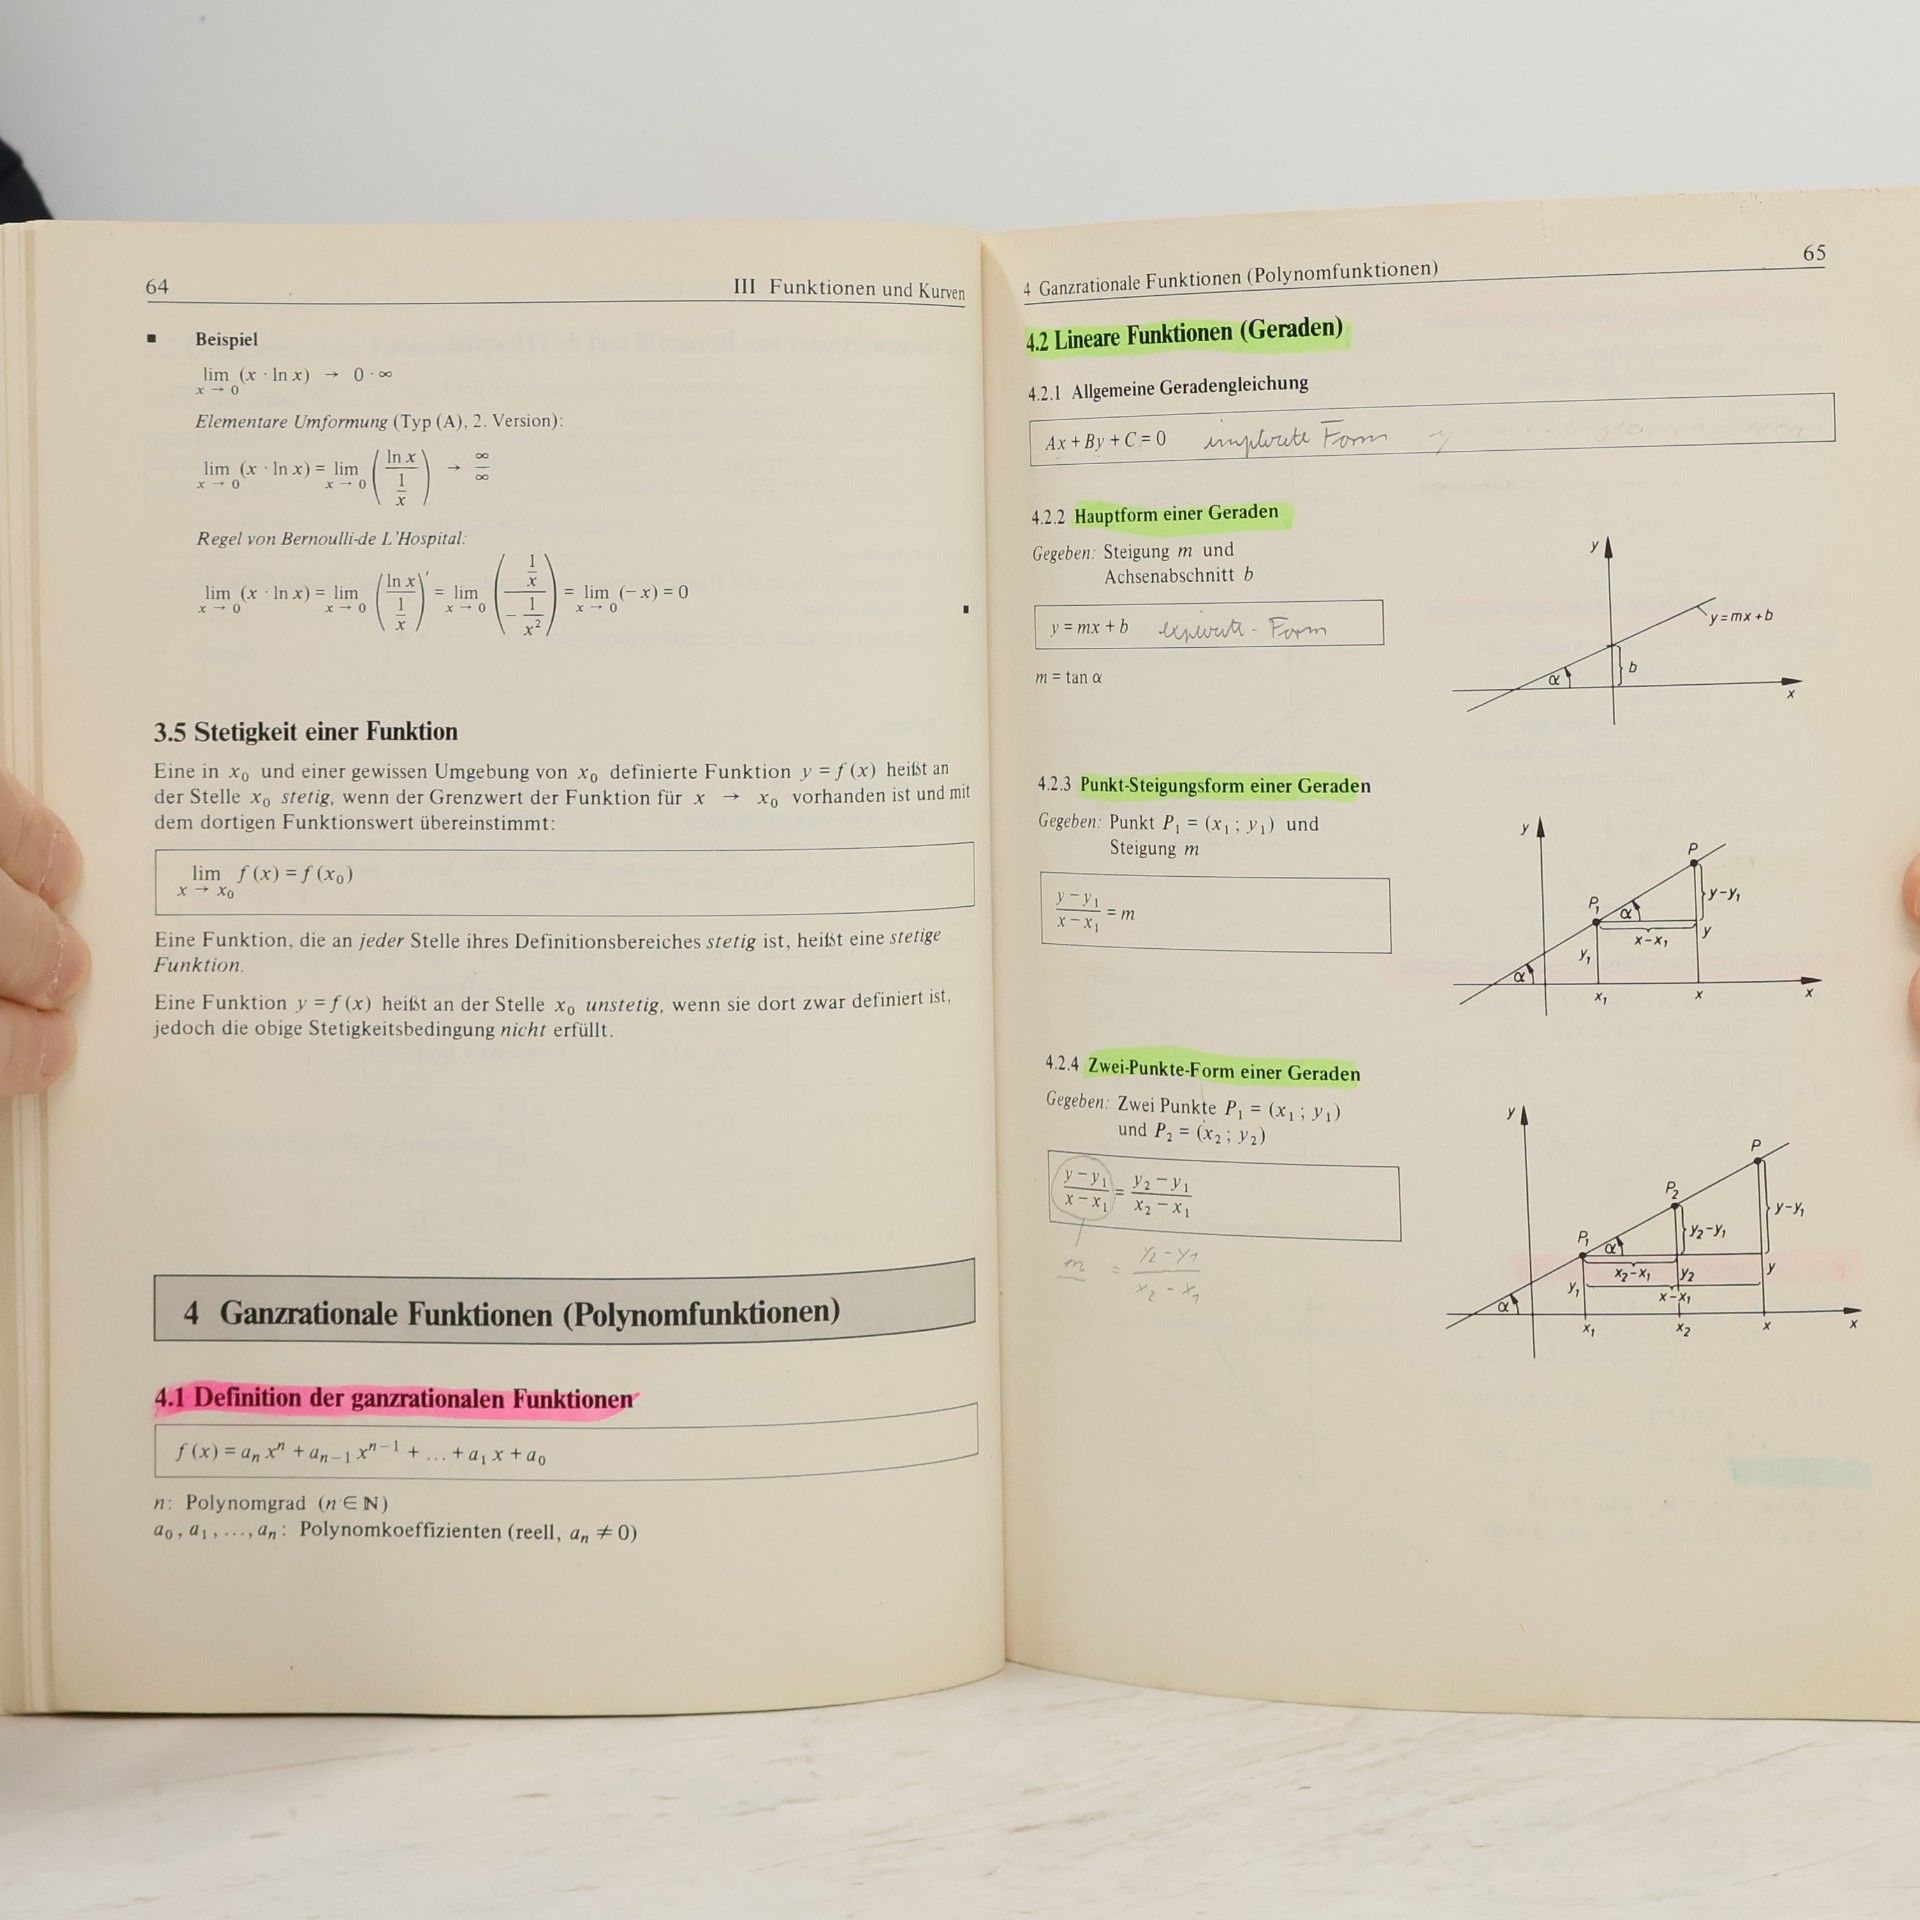 64
III Funktionen und Kurven
■ Beispiel
lim (x · ln x) → 0 · ∞
x → 0
Elementare Umformung (Typ (A), 2. Version):
lim (x · ln x) = lim (ln x / (1/x)) → ∞/∞
x → 0 x → 0
Regel von Bernoulli-de L'Hospital:
lim (x · ln x) = lim (ln x / (1/x))′ = lim ((1/x) / (−1/x²)) = lim (−x) = 0
x → 0 x → 0 x → 0 x → 0
■
3.5 Stetigkeit einer Funktion
Eine in x₀ und einer gewissen Umgebung von x₀ definierte Funktion y = f(x) heißt an
der Stelle x₀ stetig, wenn der Grenzwert der Funktion für x → x₀ vorhanden ist und mit
dem dortigen Funktionswert übereinstimmt:
lim f(x) = f(x₀)
x → x₀
Eine Funktion, die an jeder Stelle ihres Definitionsbereiches stetig ist, heißt eine stetige
Funktion.
Eine Funktion y = f(x) heißt an der Stelle x₀ unstetig, wenn sie dort zwar definiert ist,
jedoch die obige Stetigkeitsbedingung nicht erfüllt.
4 Ganzrationale Funktionen (Polynomfunktionen)
4.1 Definition der ganzrationalen Funktionen
f(x) = aₙ xⁿ + aₙ₋₁ xⁿ⁻¹ + ... + a₁ x + a₀
n: Polynomgrad (n ∈ ℕ)
a₀, a₁, ..., aₙ: Polynomkoeffizienten (reell, aₙ ≠ 0)
4 Ganzrationale Funktionen (Polynomfunktionen)
65
4.2 Lineare Funktionen (Geraden)
4.2.1 Allgemeine Geradengleichung
Ax + By + C = 0 implizite Form
4.2.2 Hauptform einer Geraden
Gegeben: Steigung m und
Achsenabschnitt b
y = mx + b explizite - Form
m = tan α
y
y = mx + b
b
α
x
4.2.3 Punkt-Steigungsform einer Geraden
Gegeben: Punkt P₁ = (x₁; y₁) und
Steigung m
(y − y₁)/(x − x₁) = m
y
P
y−y₁
P₁
α
x−x₁
y
y₁
α
x₁ x x
4.2.4 Zwei-Punkte-Form einer Geraden
Gegeben: Zwei Punkte P₁ = (x₁; y₁)
und P₂ = (x₂; y₂)
(y − y₁)/(x − x₁) = (y₂ − y₁)/(x₂ − x₁)
m = (y₂ − y₁)/(x₂ − x₁)
y
P
P₂
y−y₁
P₁
α
y₂−y₁
x₂−x₁
y₂
y
y₁
x−x₁
α
x₁ x₂ x x